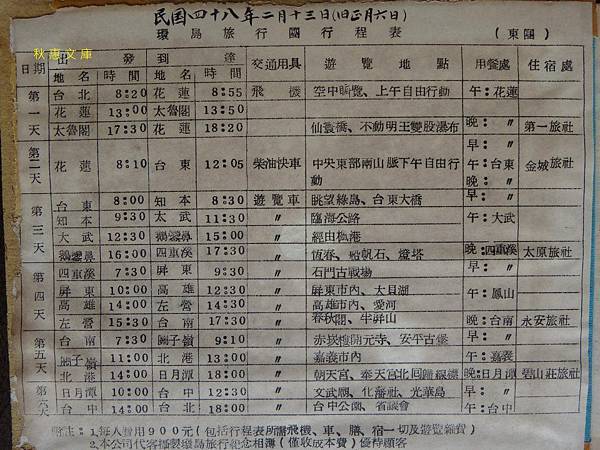 民国四十八年二月十三日(旧正月六日)
秋惠文庫
環島旅行團行程表 (東團)
日期 出發 到達 交通用具 遊覽地點 用餐處 住宿處
地名 時間 地名 時間
第一天 台北 8:20 花蓮 8:55 飛機 空中瞬覽、上午自由行動 午:花蓮
花蓮 13:00 太魯閣 13:50
太魯閣 17:30 花蓮 18:20 仙寰橋、不動明王雙股瀑布 晚:〃 第一旅社
第二天 早:〃
花蓮 8:10 台東 12:05 柴油快車 中央東部南山脈下午自由行動 午:台東 金城旅社
晚:〃
第三天 台東 8:00 知本 8:30 遊覽車 眺望綠島、台東大橋 早:〃
知本 9:30 太武 11:30 〃 臨海公路 午:大武
大武 12:30 鵝鑾鼻 15:00 〃 經由楓港
鵝鑾鼻 16:00 四重溪 17:30 〃 恆春、船帆石、燈塔 晚:四重溪 太原旅社
第四天 四重溪 7:30 屏東 9:30 〃 石門古戰場 早:〃
屏東 10:00 高雄 12:30 〃 屏東市內、大貝湖 午:鳳山
高雄 14:00 左營 14:30 〃 高雄市內、愛河
左營 15:30 台南 17:30 〃 春秋閣、半屏山 晚:台南 永安旅社
第五天 台南 7:30 關子嶺 9:10 〃 赤崁樓開元寺、安平古堡 早:〃
關子嶺 11:00 北港 13:00 〃 嘉義市內 午:嘉義
北港 14:00 日月潭 18:00 〃 朝天宮、奉天宮北回歸線標 晚:日月潭 碧山莊旅社
第六天 日月潭 10:00 台中 12:30 〃 文武廟、化蕃社、光華島 早:〃
台中 14:00 台北 18:00 〃 台中公園、省議會 午:台中
附注:1.每人費用900元(包括行程表所需飛機、車、膳、宿一切及遊覽雜費)
2.本公司代客攝製環島旅行紀念相簿(僅收成本費)優待顧客